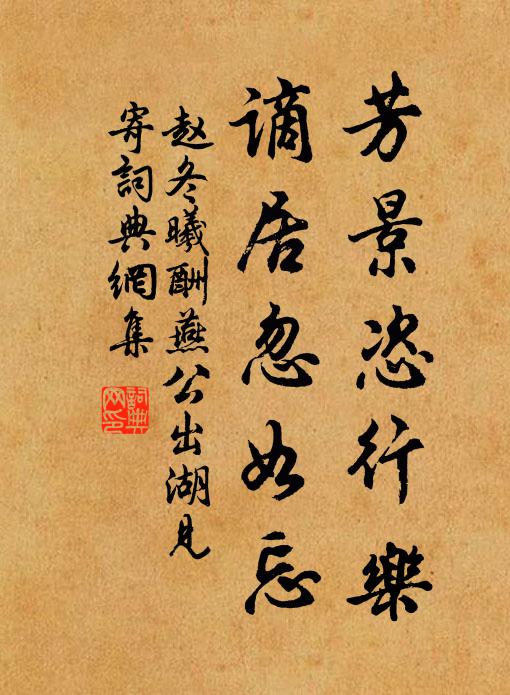 芳景恣行樂
謫居忽如忘
赵冬曦酬燕公出湖見
寄詞典網集
詞典网印